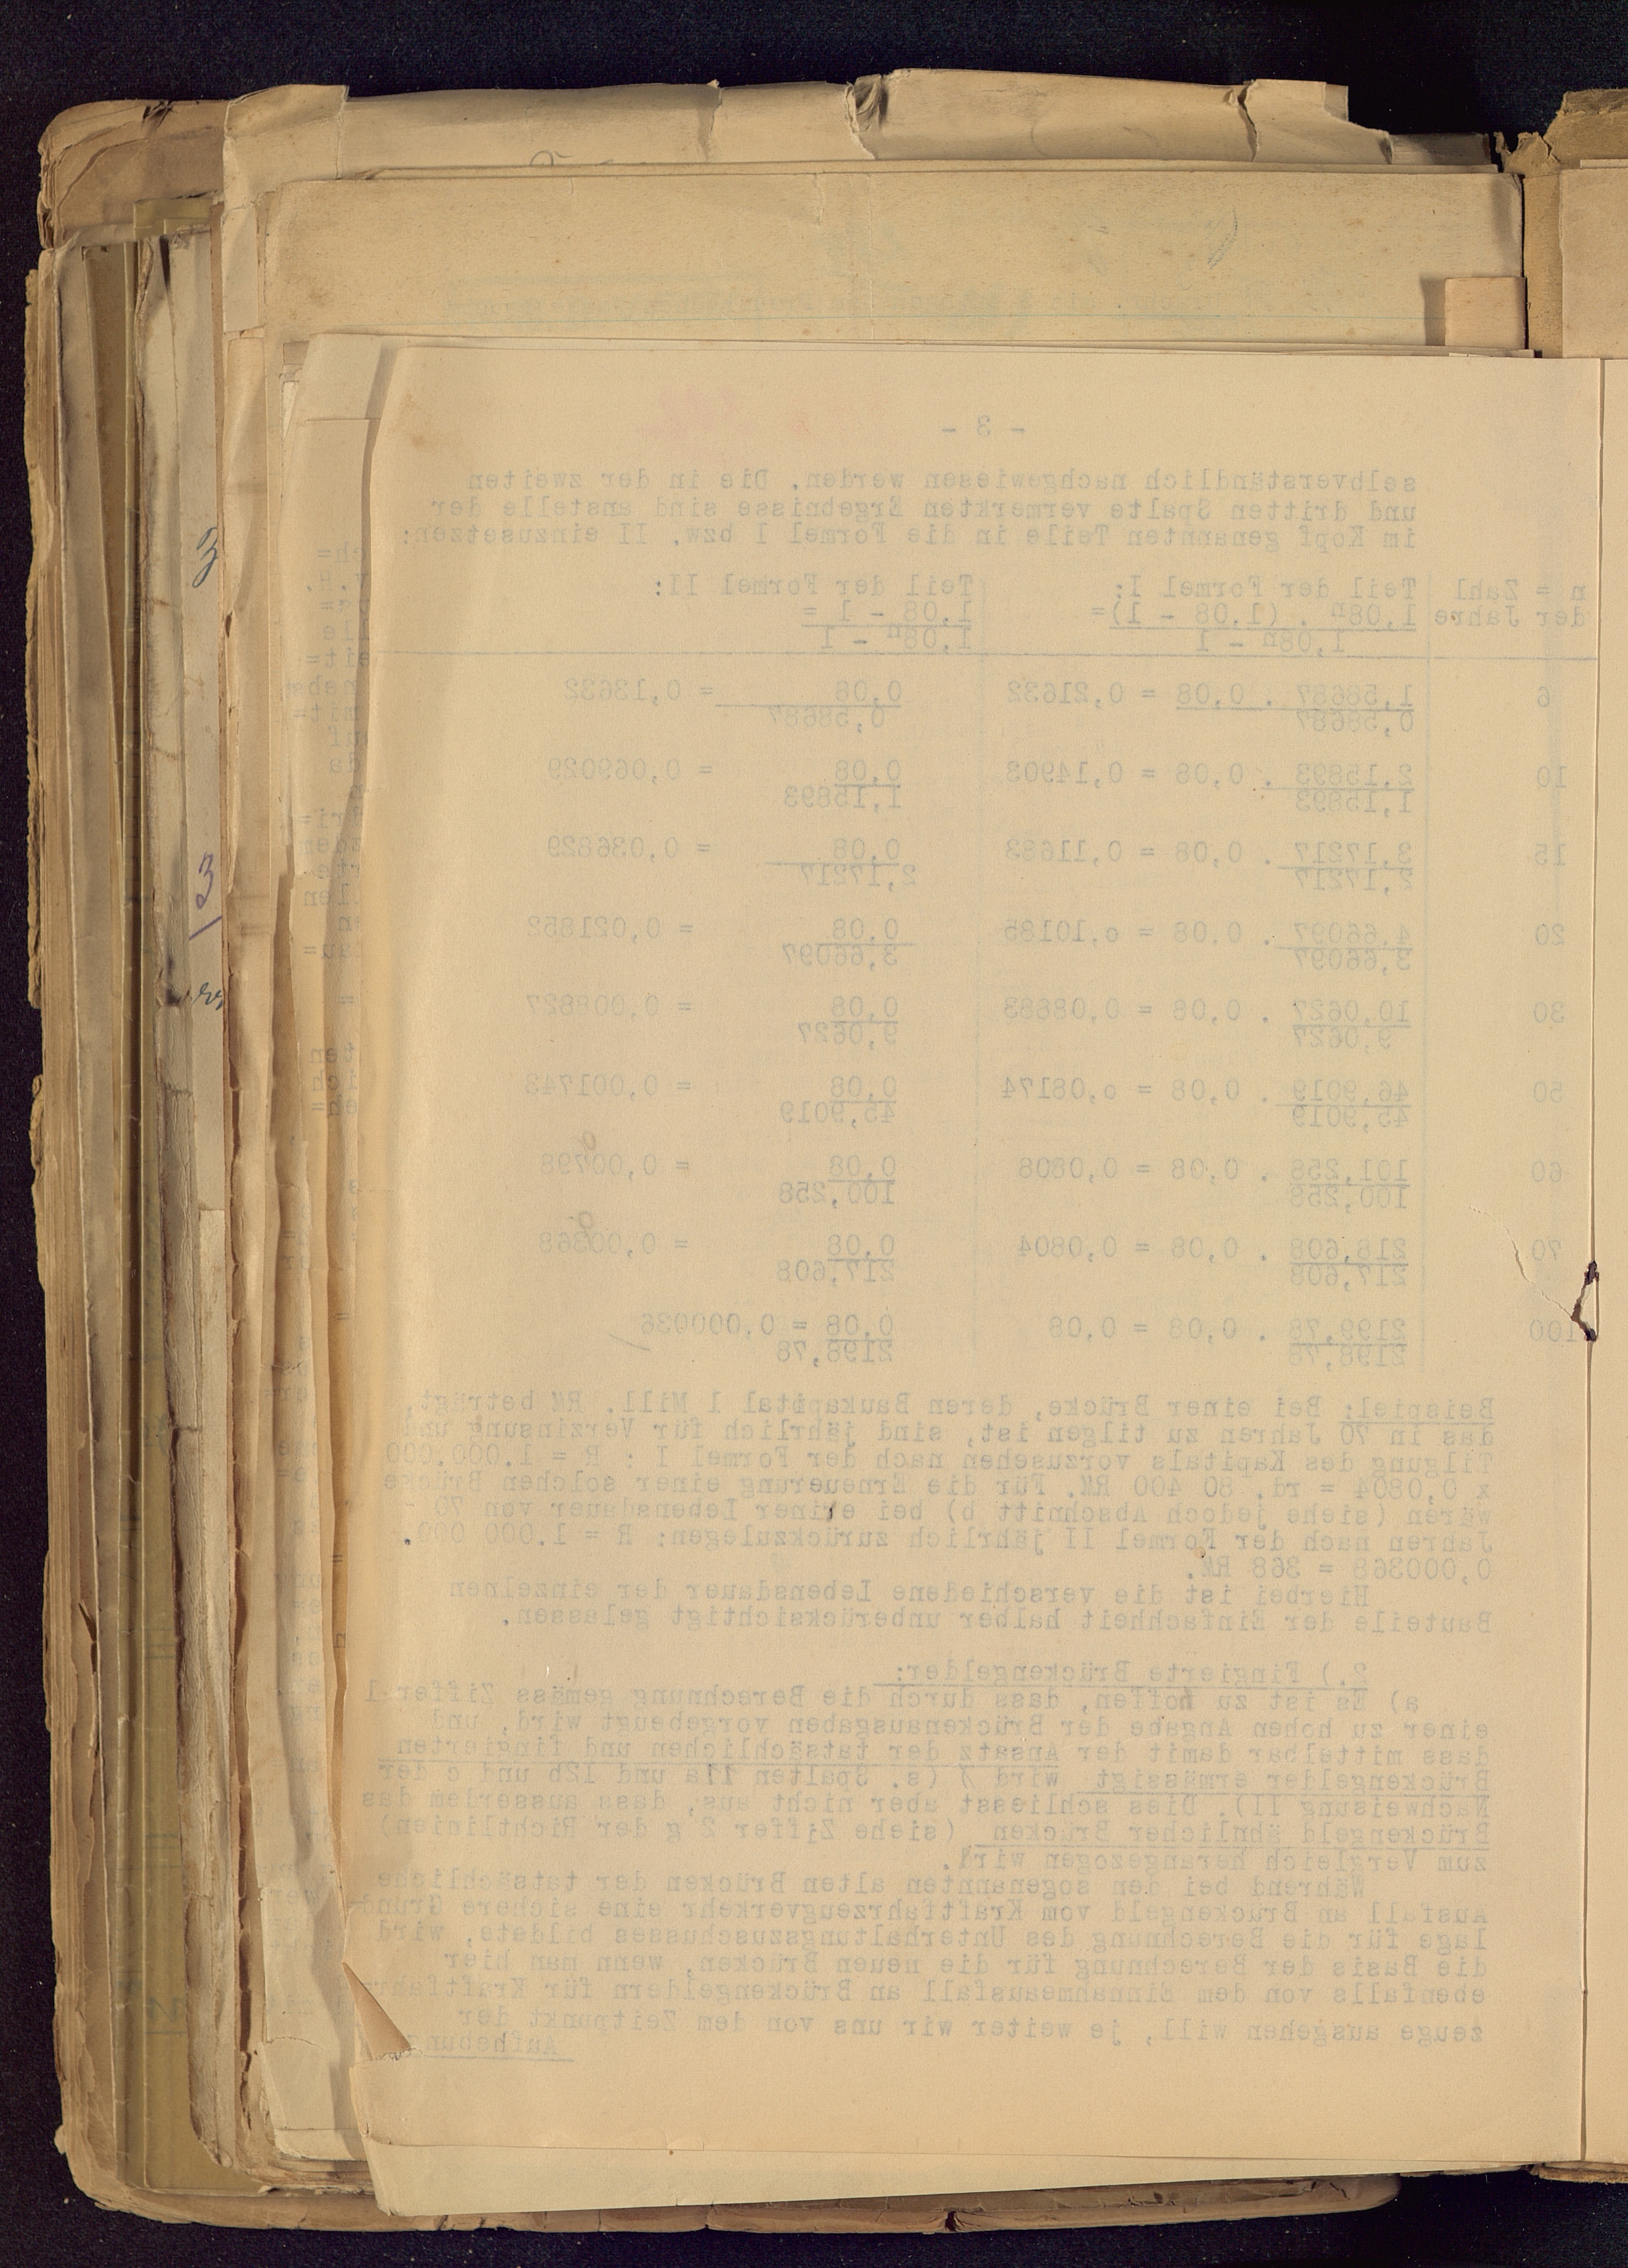 - 3 -
selbverständlich nachgewiesen werden. Die in der zweiten
und dritten Spalte vermerkten Ergebnisse sind anstelle der
im Kopf genannten Teile in die Formel I bzw. II einzusetzen:
n = Zahl Teil der Formel I: Teil der Formel II:
der Jahre 1,08n . (1,08 - 1)= 1,08 - 1 =
1,08n - 1 1,08n - 1
6 1,58687 . 0,08 = 0,21632 0,08 = 0,13632
0,58687 0,58687
10 2,15893 . 0,08 = 0,14903 0,08 = 0,069029
1,15893 1,15893
15 3,17217 . 0,08 = 0,11683 0,08 = 0,036829
2,17217 2,17217
20 4,66097 . 0,08 = o,10185 0,08 = 0,021852
3,66097 3,66097
30 10,0627 . 0,08 = 0,08883 0,08 = 0,008827
9,0627 9,0627
50 46,9019 . 0,08 = o,08174 0,08 = 0,001743
45,9019 45,9019
60 101,258 . 0,08 = 0,0808 0,08 = 0,00798
100,258 100,258
70 218,608 . 0,08 = 0,0804 0,08 = 0,00368
217,608 217,608
100 2199,78 . 0,08 = 0,08 0,08 = 0,000036
2198,78 2198,78
Beispiel: Bei einer Brücke, deren Baukapital 1 Mill. RM beträgt,
das in 70 Jahren zu tilgen ist, sind jährlich für Verzinsung und
Tilgung des Kapitals vorzusehen nach der Formel I : R = 1.000.000
x 0,0804 = rd. 80 400 RM. Für die Erneuerung einer solchen Brücke
wären (siehe jedoch Abschnitt b) bei einer Lebensdauer von 70
Jahren nach der Formel II jährlich zurückzulegen: R = 1.000 000.
0,000368 = 368 RM.
Hierbei ist die verschiedene Lebensdauer der einzelnen
Bauteile der Einfachheit halber unberücksichtigt gelassen.
2.) Fingierte Brückengelder:
a) Es ist zu hoffen, dass durch die Berechnung gemäss Ziffer 1
einer zu hohen Angabe der Brückenausgaben vorgebeugt wird, und
dass mittelbar damit der Ansatz der tatsächlichen und fingierten
Brückengelder ermässigt wird ) (s. Spalten 11a und 12b und c der
Nachweisung II). Dies schliesst aber nicht aus, dass ausserdem das
Brückengeld ähnlicher Brücken (siehe Ziffer 2 g der Richtlinien)
zum Vergleich herangezogen wird.
Während bei den sogenannten alten Brücken der tatsächliche
Ausfall an Brückengeld vom Kraftfahrzeugverkehr eine sichere Grund-
lage für die Berechnung des Unterhaltungszuschusses bildete, wird
die Basis der Berechnung für die neuen Brücken, wenn man hier
ebenfalls von dem Einnahmeausfall an Brückengeldern für Kraftfahr
zeuge ausgehen will, je weiter wir uns von dem Zeitpunkt der
Aufhebung